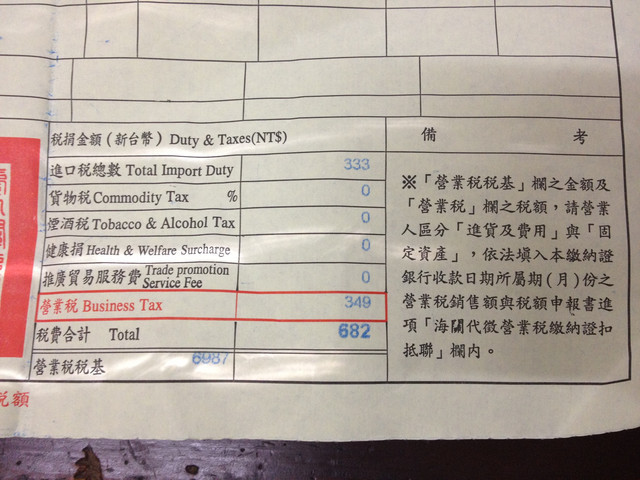 稅捐金額(新台幣) Duty & Taxes(NT$)
進口稅總數 Total Import Duty 333
貨物稅 Commodity Tax % 0
煙酒稅 Tobacco & Alcohol Tax 0
健康捐 Health & Welfare Surcharge 0
推廣貿易服務費 Trade promotion Service Fee 0
營業稅 Business Tax 349
稅費合計 Total 682
營業稅稅基 6987
備 考
※「營業稅稅基」欄之金額及
「營業稅」欄之稅額，請營業
人區分「進貨及費用」與「固
定資產」，依法填入本繳納證
銀行收款日期所屬期(月)份之
營業稅銷售額與稅額申報書進
項「海關代徵營業稅繳納證扣
抵聯」欄內。
稅額